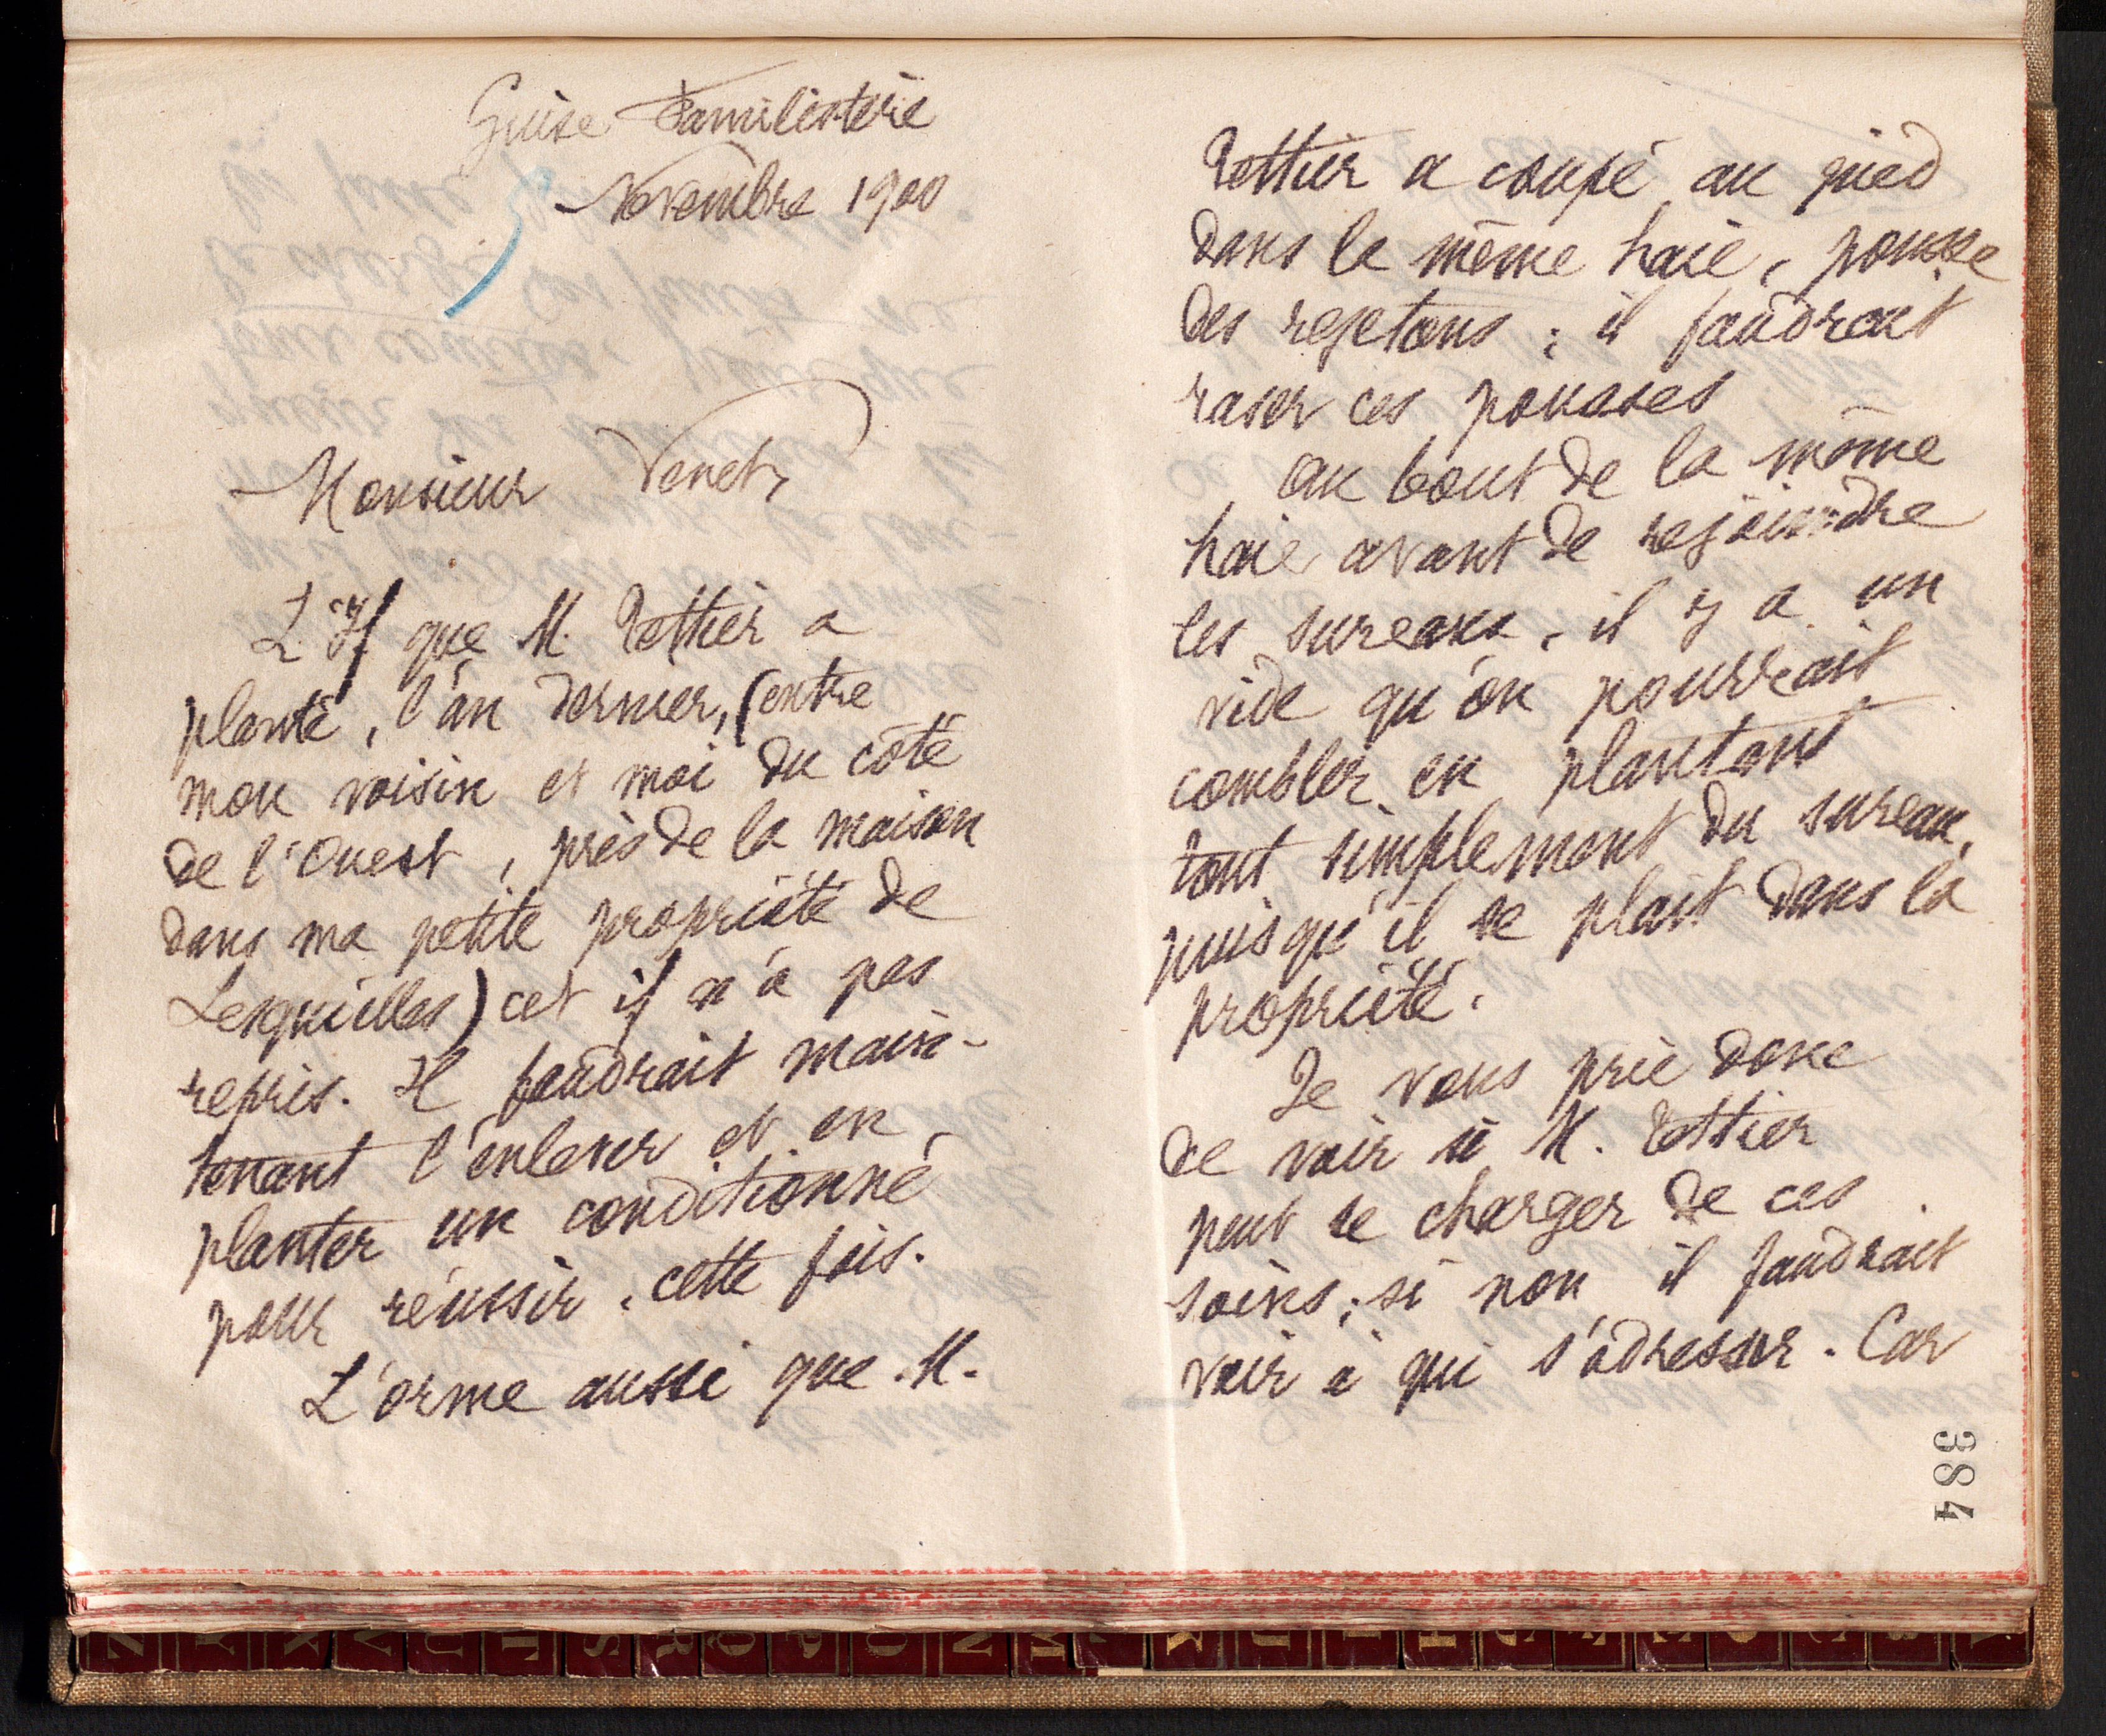 Guise Familistère
Novembre 1900
Monsieur Venet,
L'If que M. Tettier a
planté, l'an dernier, (entre
mon voisin et moi du côté
de l'Ouest, près de la maison
dans ma petite propriété de
Lesquielles) cet if n'a pas
repris. Il faudrait main-
tenant l'enlever et en
planter un conditionné
pour réussir, cette fois.
L'orme aussi que M.
Tettier a coupé au pied
dans la même haie, pousse
des rejetons ; il faudrait
raser ces pousses
au bout de la même
haie avant de rejoindre
les sureaux, il y a un
vide qu'on pourrait
combler en plantant
tout simplement du sureau,
puisqu'il se plait dans la
propriété.
Je vous prie donc
de voir si M. Tettier
peut se charger de ces
soins ; si non il faudrait
voir à qui s'adresser. Car
384
Z Y X V U T S R Q P O N M L K J I H G F E D C B A